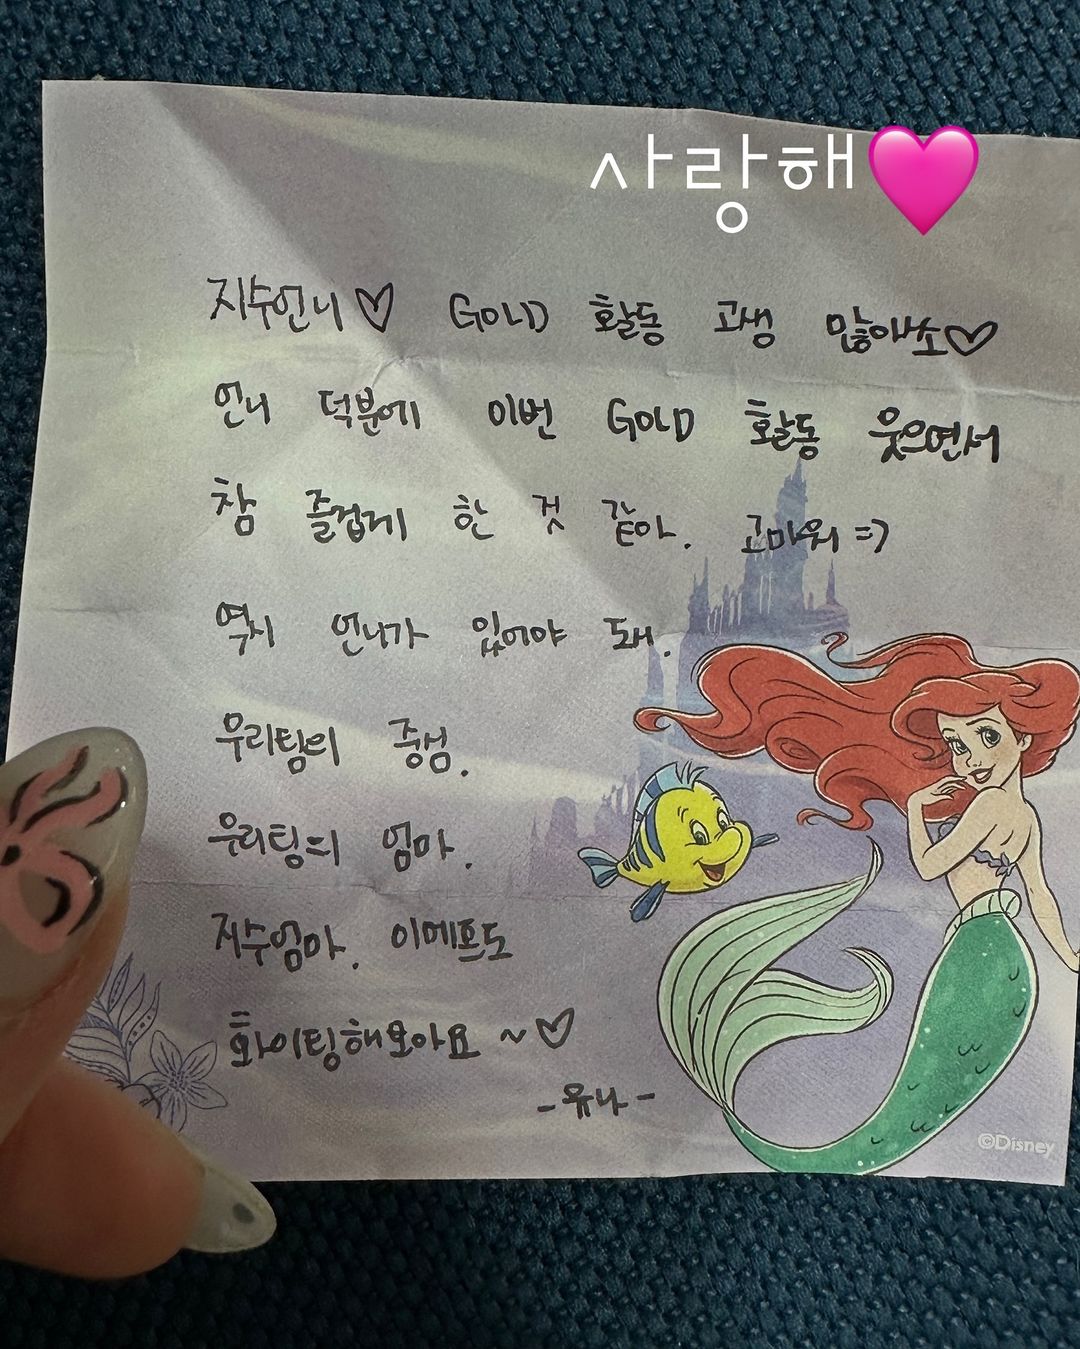 사랑해🩷
지수언니♡ GOLD 활동 고생 많아쏘♡
언니 덕분에 이번 GOLD 활동 웃으면서
참 즐겁게 한 것 같아. 고마워 =)
역시 언니가 있어야 돼.
우리팀의 중심.
우리팀의 엄마.
지수엄마. 이메프도
화이팅해보아요 ~♡
-유나-
©Disney